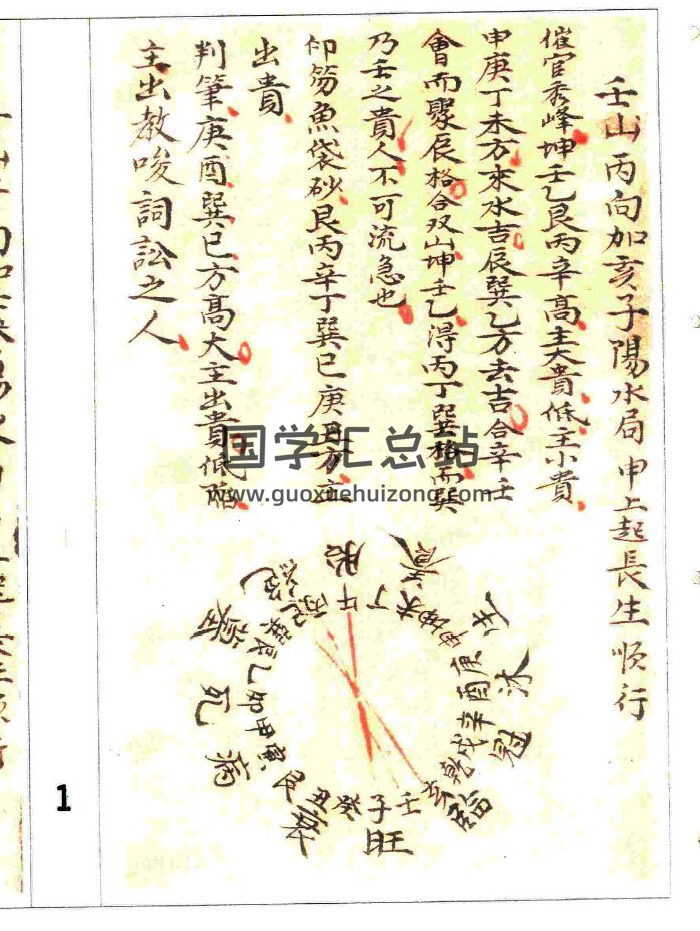 壬山丙向加亥子陽水局申上起長生順行
催官秀峰坤壬乙艮丙辛高主大貴低主小貴
申庚丁未方來水吉辰巽乙方去吉合辛壬
會而聚辰格合双山坤壬乙得丙丁巽格而巽
乃壬之貴人不可流急也
印笏魚袋砂艮丙辛丁巽巳庚酉方主
出貴
判筆庚酉巽巳方高大主出貴低陷
主出教唆詞訟之人
国学汇总站
www.guoxuehuizong.com
胎
養
生
沐
冠
臨
旺
衰
病
死
墓
絕
午丁未坤申庚酉辛戌乾亥壬子癸丑艮寅甲卯乙辰巽巳丙
1